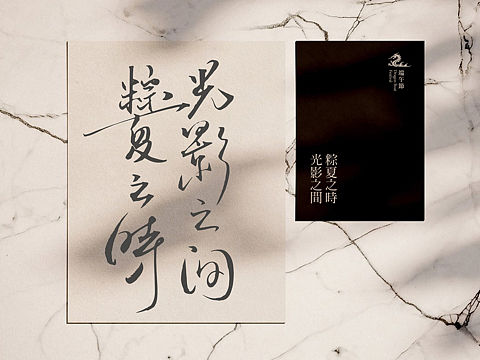 光影之間
粽夏之時
端午節
Dragon Boat
Festival
粽夏之時
光影之間